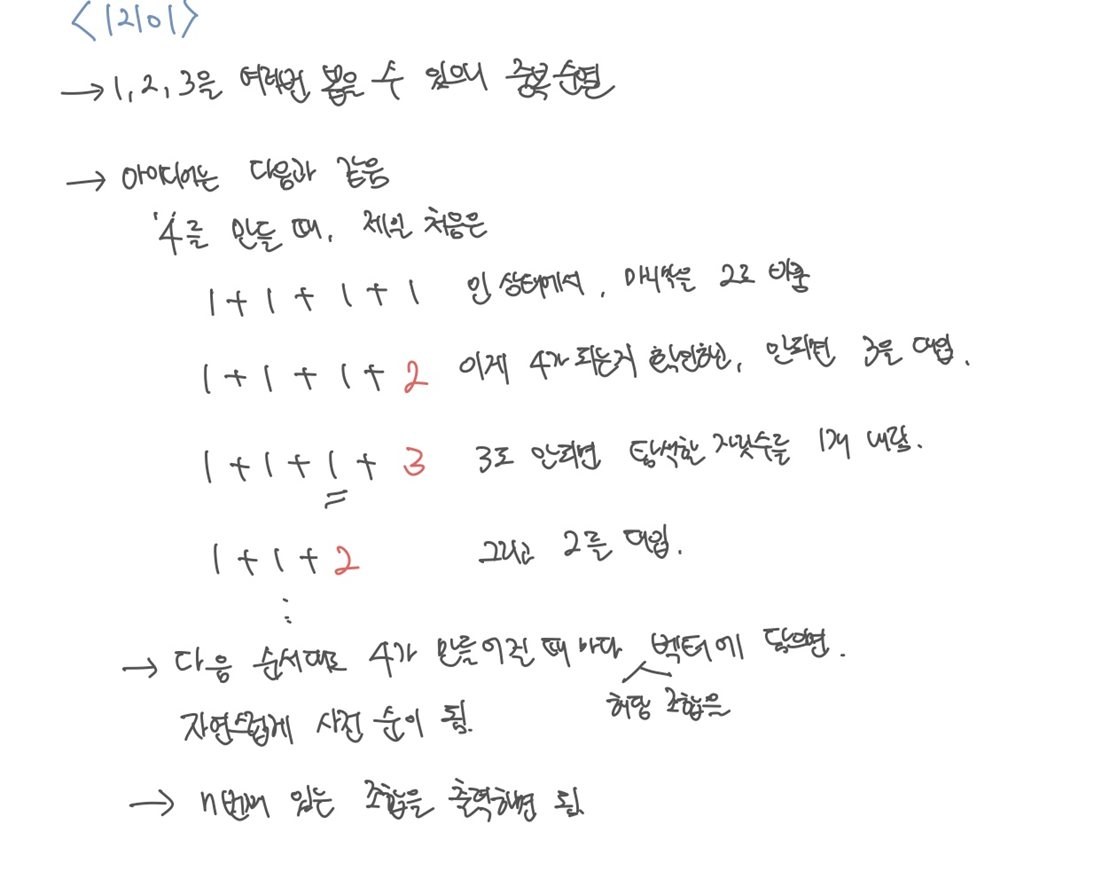 <12101>
→ 1, 2, 3을 여러번 뽑을 수 있으니 중복순열
→ 아이디어는 다음과 같음
'4'를 만들 때, 제일 처음은
1 + 1 + 1 + 1 인 상태에서, 마지막을 2로 바꿈
1 + 1 + 1 + 2 이게 4가 되는거 확인하고, 안되면 3을 대입.
1 + 1 + 1 + 3 3도 안되면 탐색한 자릿수를 1개 내림.
1 + 1 + 2 그리고 2를 대입.
⋮
→ 다음 순서대로 4가 만들어질 때 마다 벡터에 담으면.
해당 조합을
자연스럽게 사전 순이 됨.
→ n번째 있는 조합을 출력하면 됨.